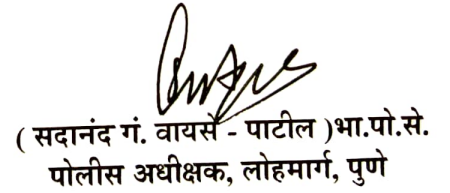 ( सदानंद गं. वायसे - पाटील )भा.पो.से.
पोलीस अधीक्षक, लोहमार्ग, पुणे